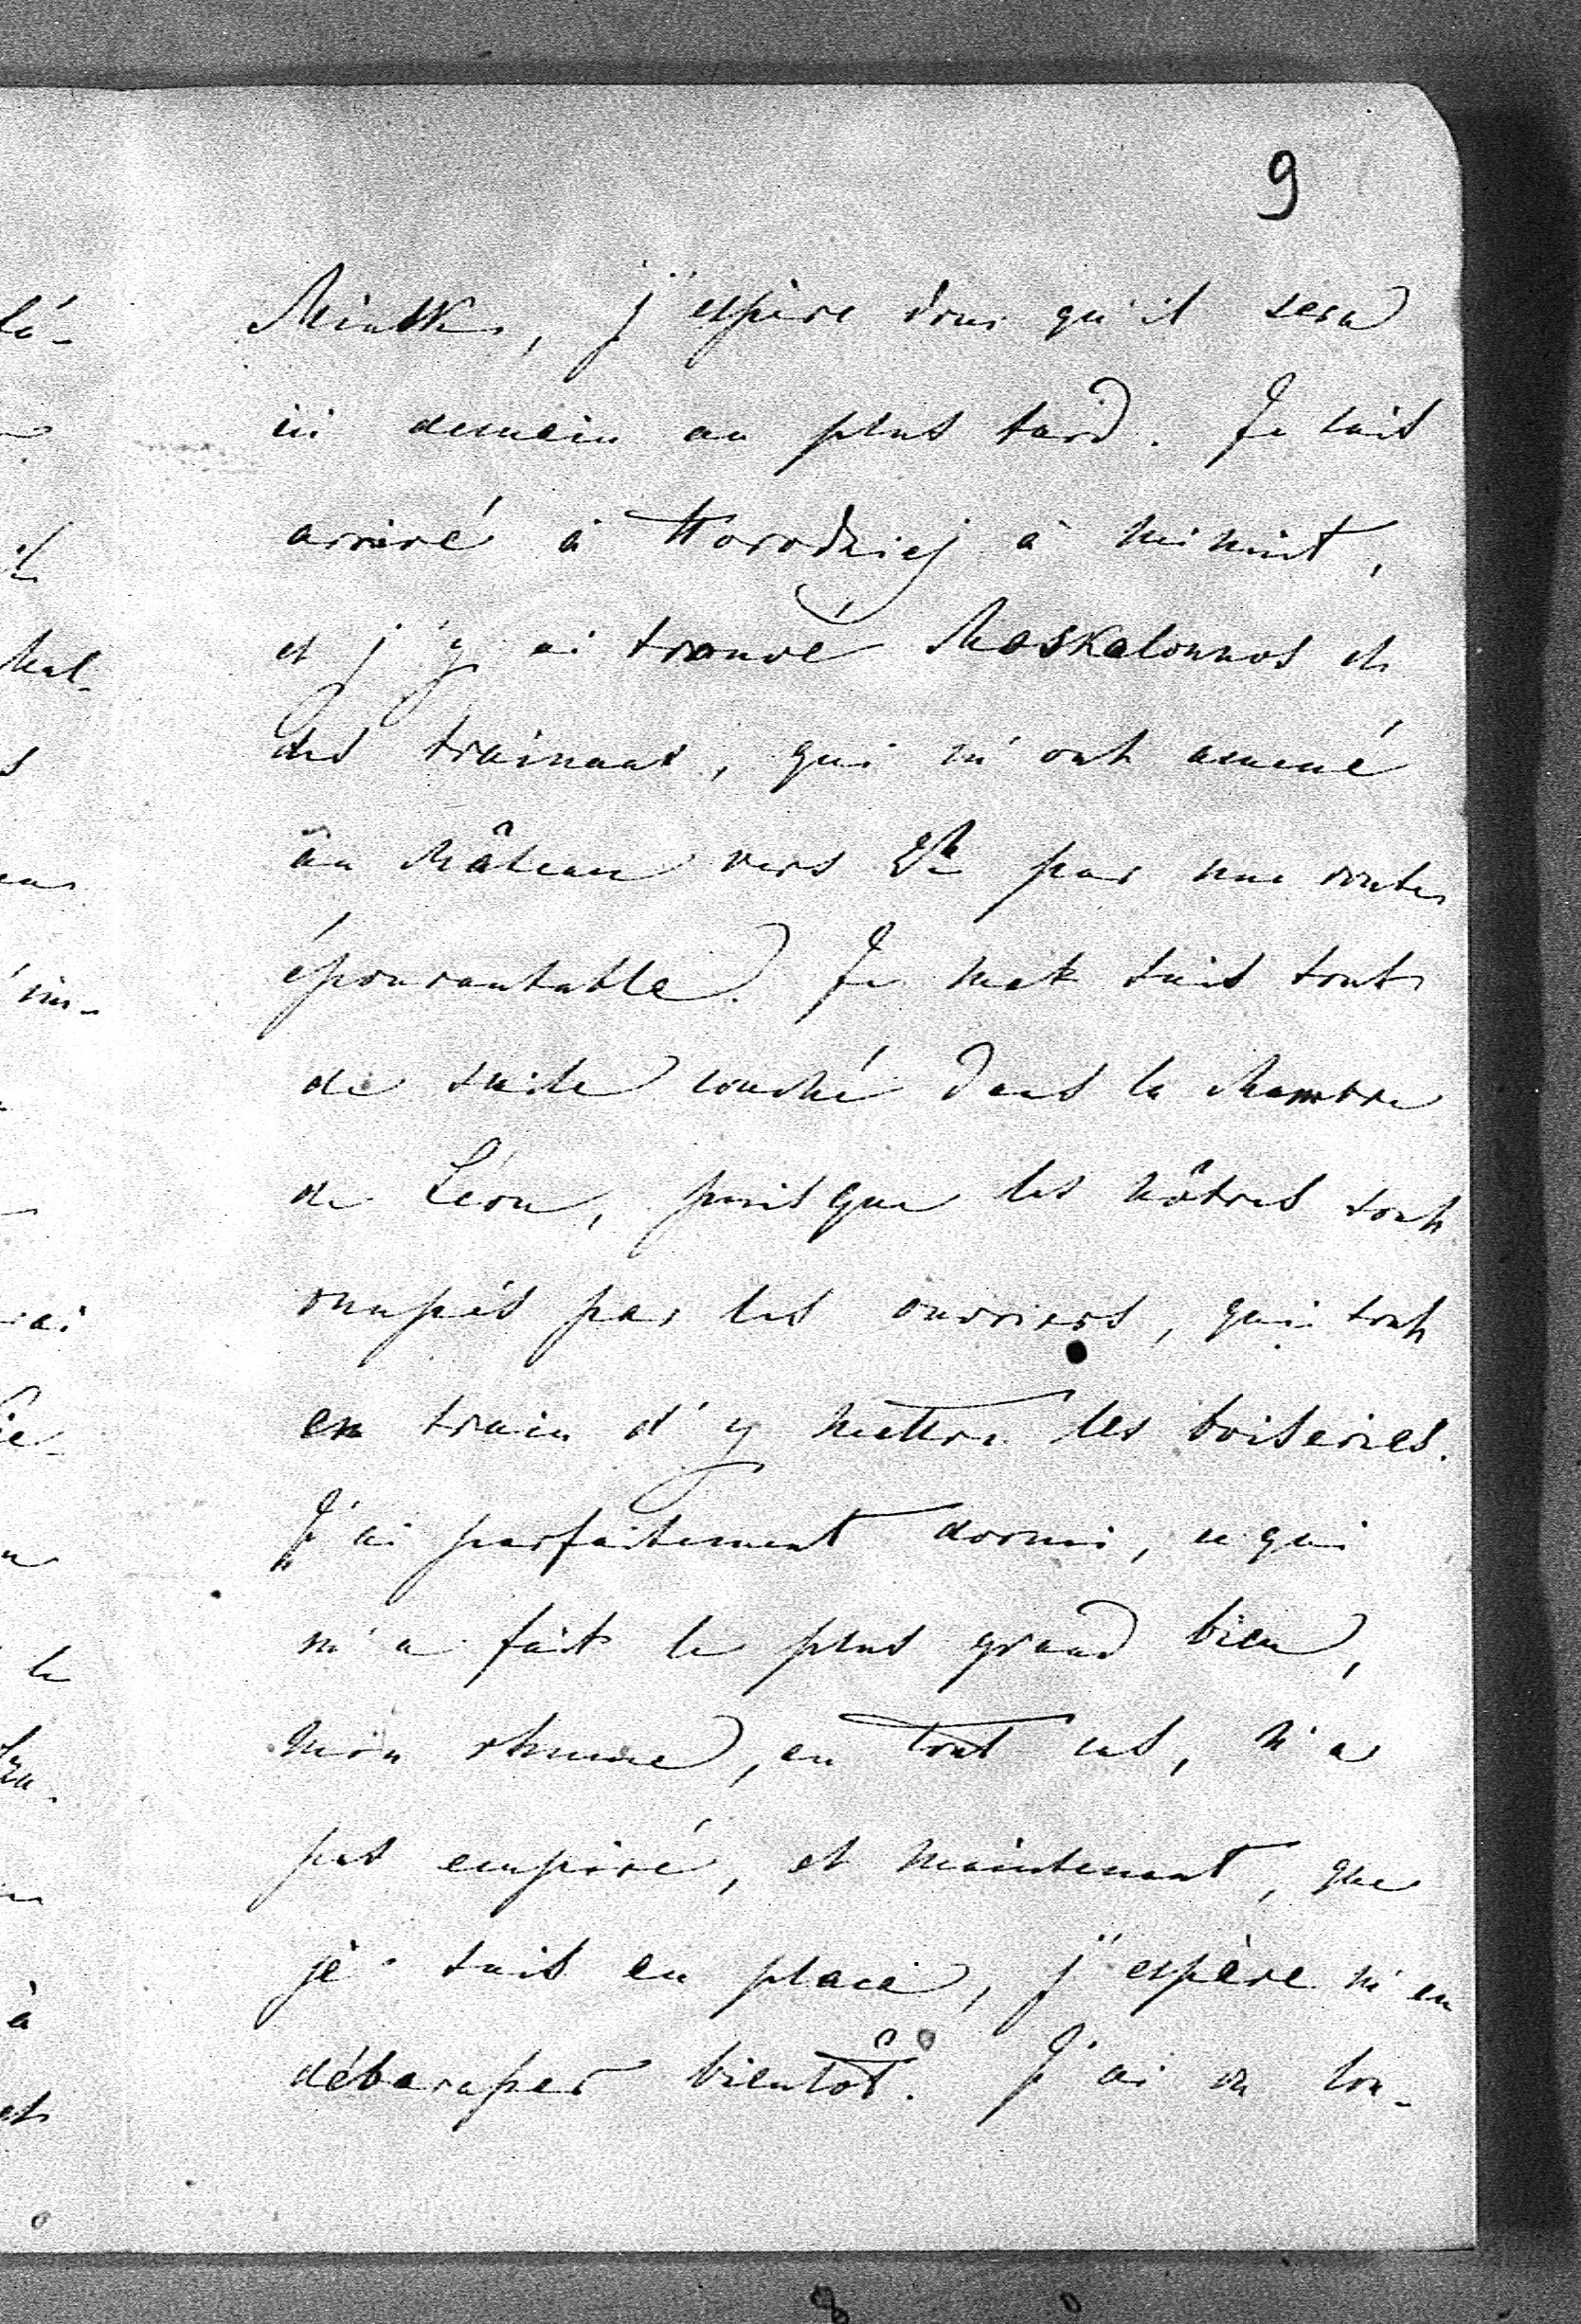 9
Minsk, j'espère donc qu'il sera
ici demain au plus tard. Je suis
arrivé à Horodziej à minuit,
et j'y ai trouvé Moskalonnos et
des traineaux, qui m'ont amené
au château vers 2h par une route
épouvantable. Je me suis tout
de suite couché dans la chambre
de Léon, puisque les nôtres sont
occupés par les ouvriers, qui sont
en train d'y mettre les boiseries.
J'ai parfaitement dormi, ce qui
m'a fait le plus grand bien,
mon rhume, en tout cas, n'a
pas empiré, et maintenant, que
je suis en place, j'espère m'en
débaraser bientôt. J'ai vu lon-